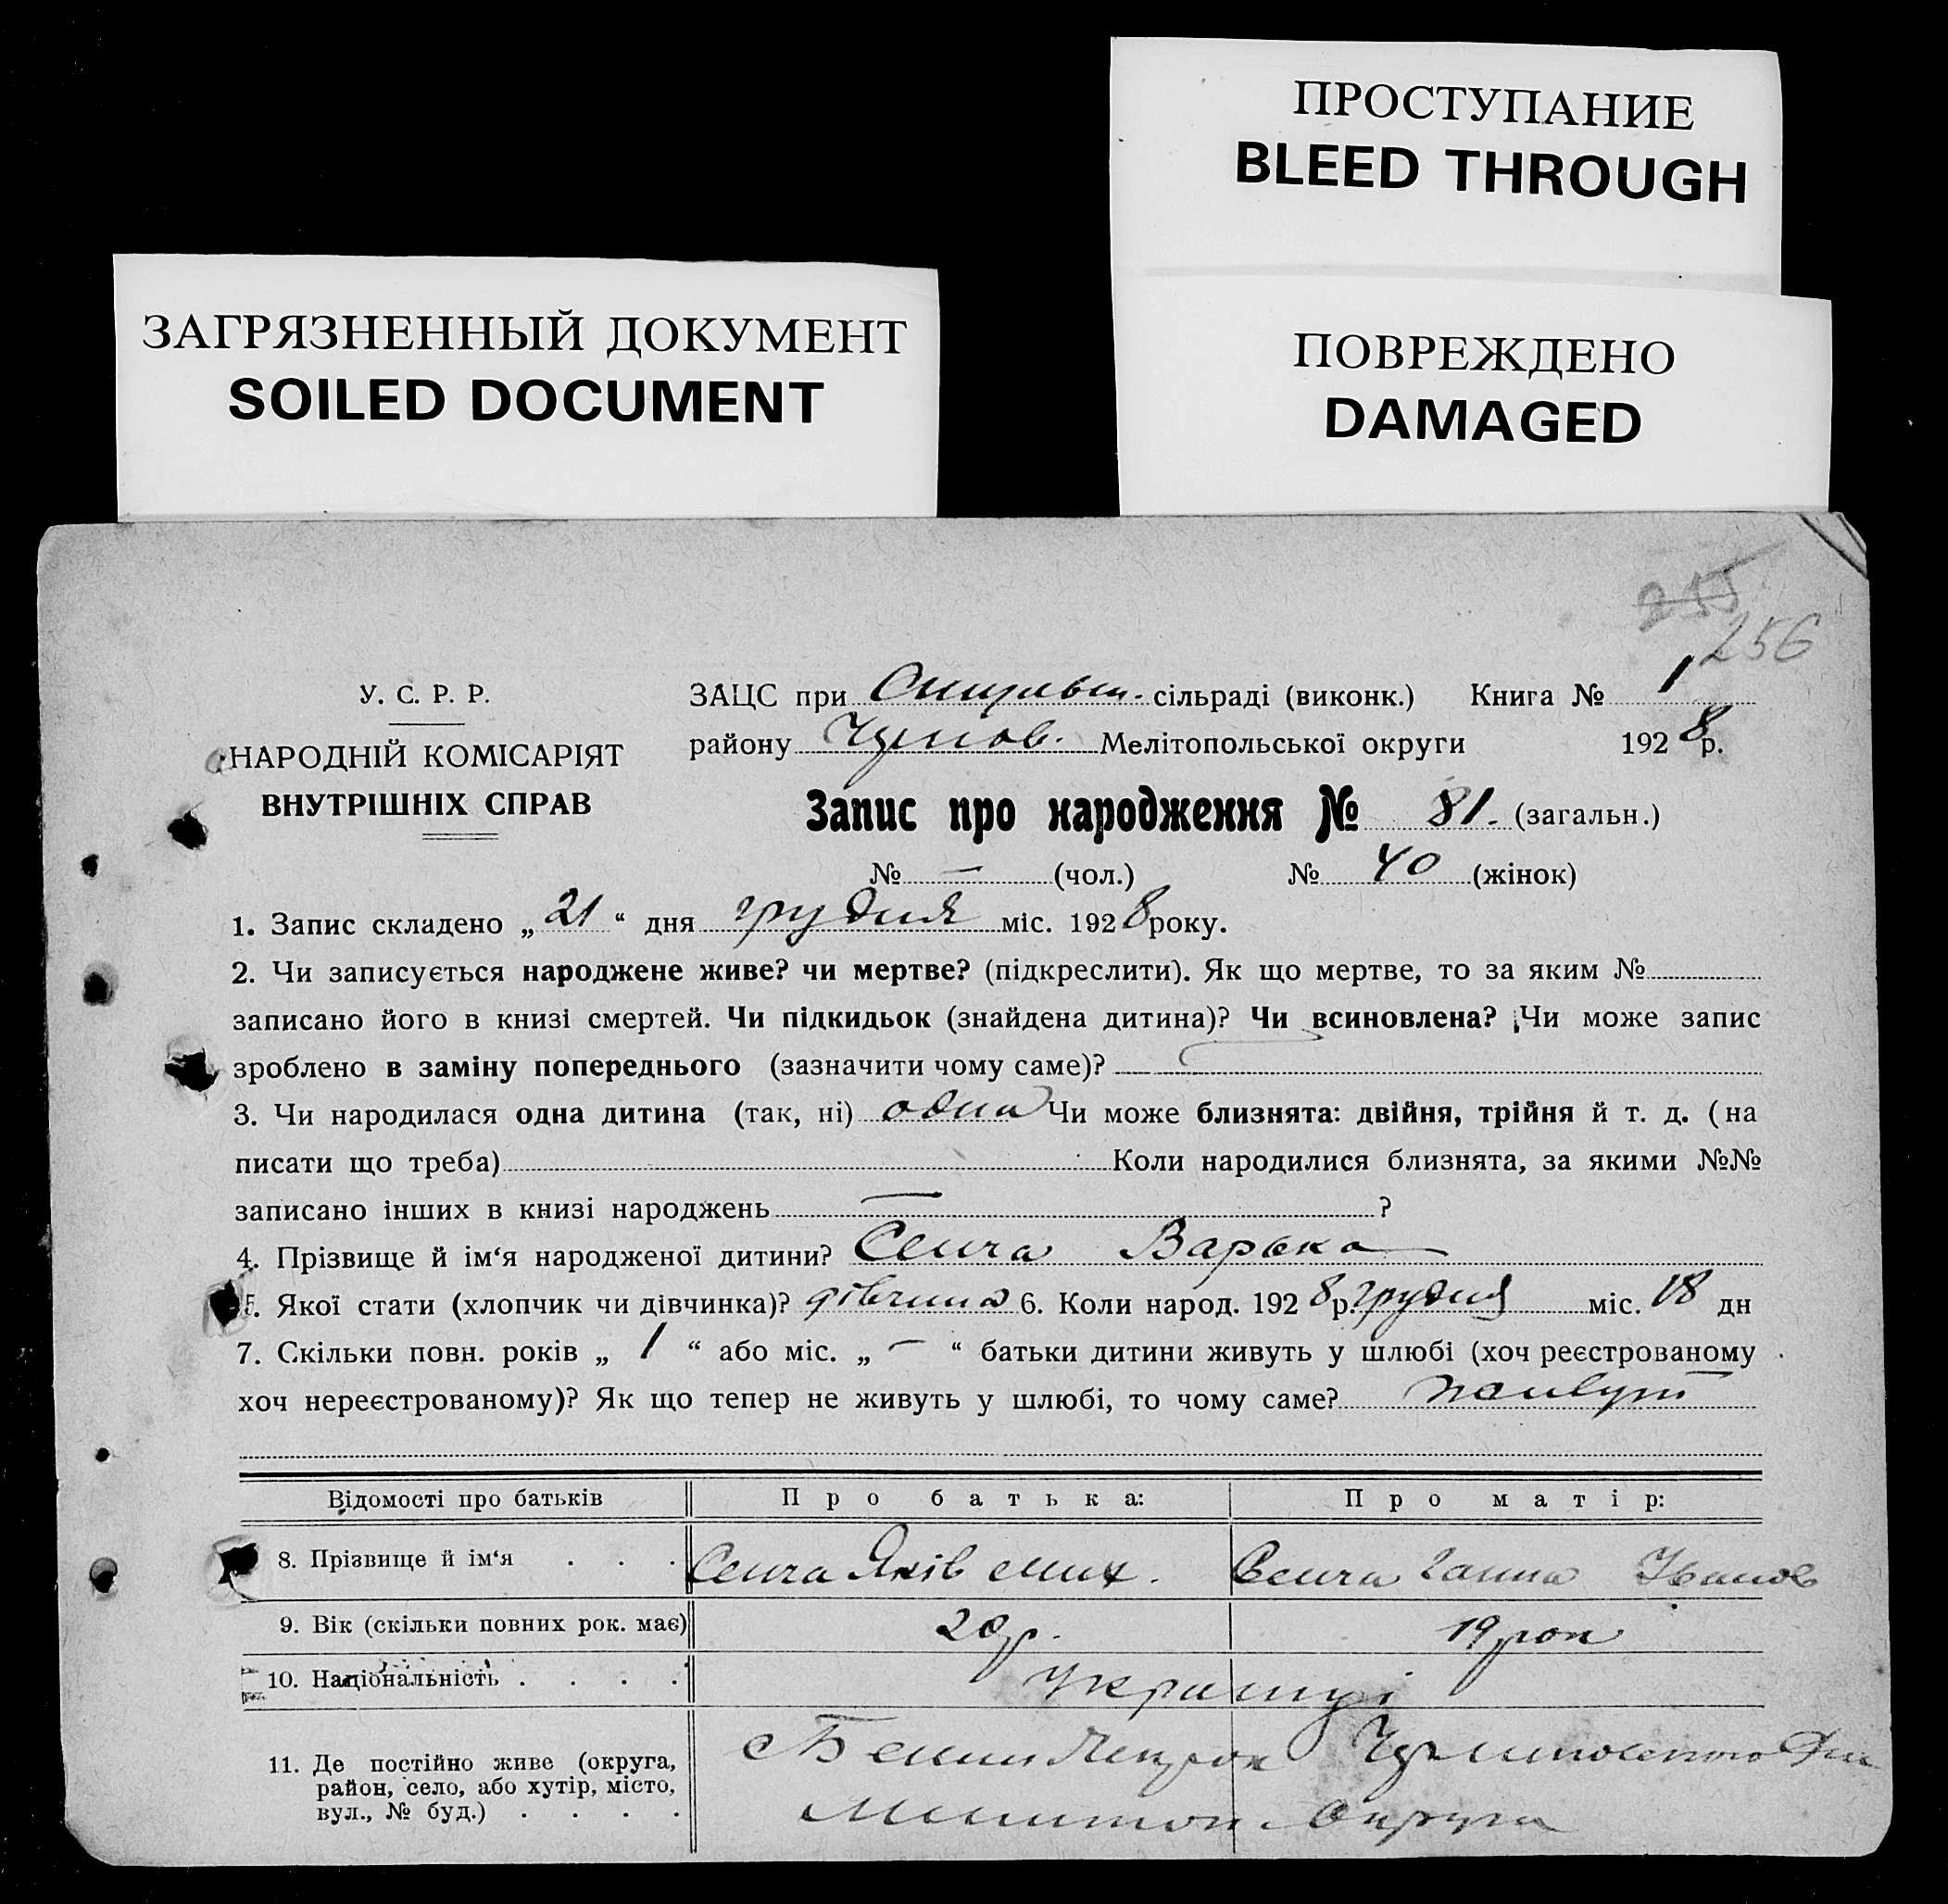 ПРОСТУПАНИЕ
BLEED THROUGH
ЗАГРЯЗНЕННЫЙ ДОКУМЕНТ
SOILED DOCUMENT
ПОВРЕЖДЕНО
DAMAGED
255
256
У. С. Р. Р.
НАРОДНІЙ КОМІСАРІЯТ
ВНУТРІШНІХ СПРАВ
ЗАЦС при сільраді (виконк.) Книга № 1
району Мелітопольської округи 1928 р.
Запис про народження № 81. (загальн.)
№ — (чол.) № 40 (жінок)
1. Запис складено „ 21 “ дня грудня міс. 1928 року.
2. Чи записується народжене живе? чи мертве? (підкреслити). Як що мертве, то за яким №
записано його в книзі смертей. Чи підкидьок (знайдена дитина)? Чи всиновлена? Чи може запис
зроблено в заміну попереднього (зазначити чому саме)?
3. Чи народилася одна дитина (так, ні) одна Чи може близнята: двійня, трійня й т. д. (на
писати що треба) Коли народилися близнята, за якими №№
записано інших в книзі народжень — ?
4. Прізвище й ім‘я народженої дитини? Сенча Варька
5. Якої стати (хлопчик чи дівчинка)? дівчина 6. Коли народ. 1928 р. грудня міс. 18 дн
7. Скільки повн. років „ 1 “ або міс. „ — “ батьки дитини живуть у шлюбі (хоч реєстрованому
хоч нереєстрованому)? Як що тепер не живуть у шлюбі, то чому саме?
Відомості про батьків Про батька: Про матір:
8. Прізвище й ім‘я . . . Сенча Яків Сенча Ганна Іванов
9. Вік (скільки повних рок. має) 20 р. 19 рок
10. Національність . . . . Українці
11. Де постійно живе (округа,
район, село, або хутір, місто,
вул., № буд.) . . . .
Округи